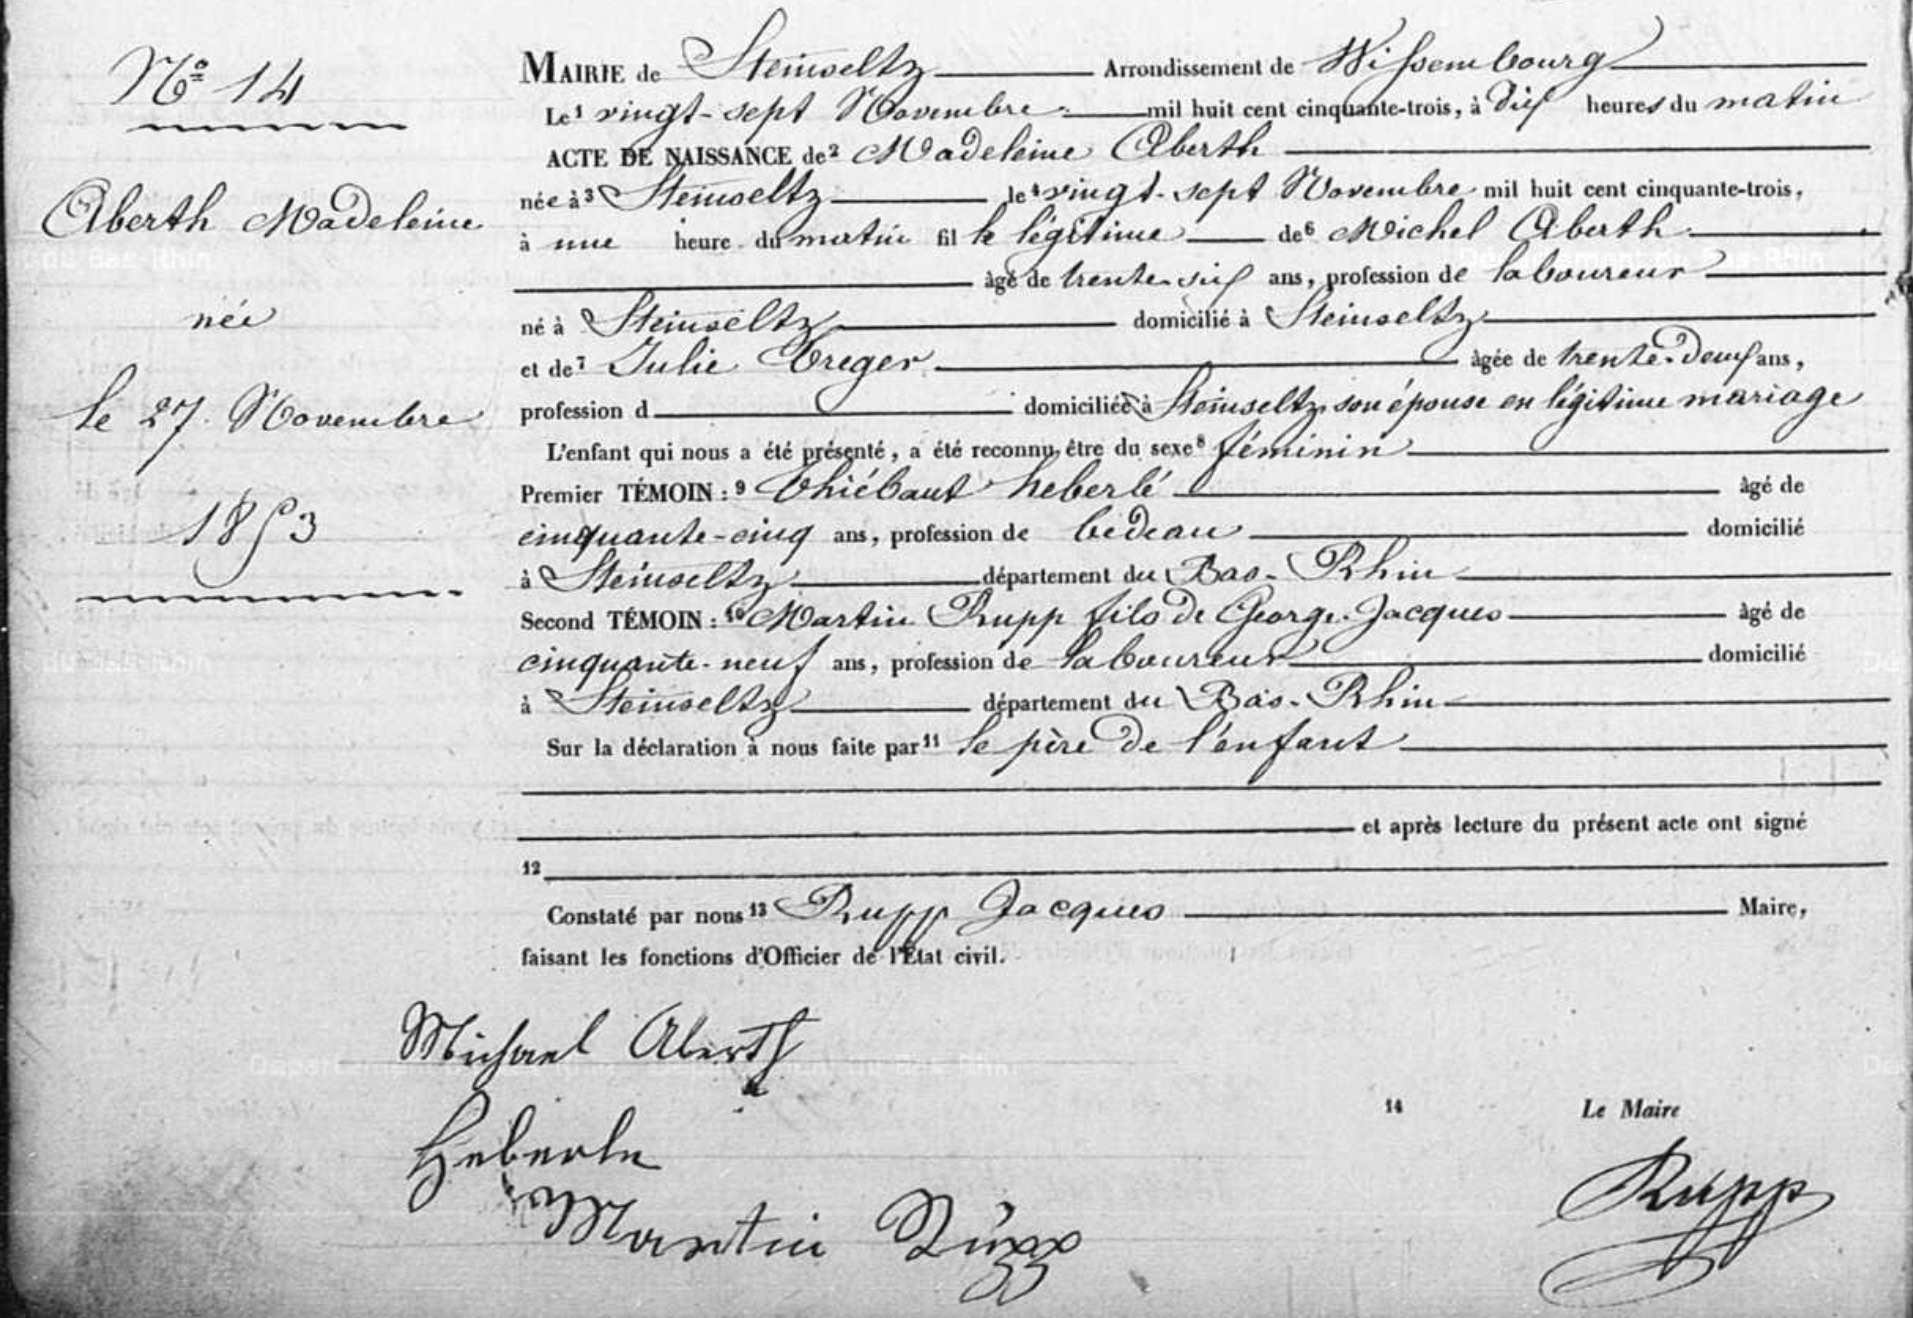 Nº 14
Aberth Madeleine
née
le 27. Novembre
1853
MAIRIE de Steinseltz Arrondissement de Wissembourg
Le1 vingt-sept Novembre mil huit cent cinquante-trois, à dix heures du matin
ACTE DE NAISSANCE de2 Madeleine Aberth
née à3 Steinseltz le4 vingt-sept Novembre mil huit cent cinquante-trois,
à une heure du matin fille légitime de6 Michel Aberth
âgé de trente-six ans, profession de laboureur
né à Steinseltz domicilié à Steinseltz
et de7 Julie Treger âgée de trente-deux ans,
profession d domiciliée à Steinseltz son épouse en légitime mariage
L'enfant qui nous a été présenté, a été reconnu être du sexe8 féminin
Premier TÉMOIN : 9 Thiébaut Heberlé âgé de
cinquante-cinq ans, profession de bedeau domicilié
à Steinseltz département du Bas-Rhin
Second TÉMOIN : 10 Martin Rupp fils de George-Jacques âgé de
cinquante-neuf ans, profession de laboureur domicilié
à Steinseltz département du Bas-Rhin
Sur la déclaration à nous faite par11 le père de l'enfant
et après lecture du présent acte ont signé
12
Constaté par nous13 Rupp Jacques Maire,
faisant les fonctions d'Officier de l'État civil.
Michael Aberth
14 Le Maire
Heberle
Rupp
Martin Rupp